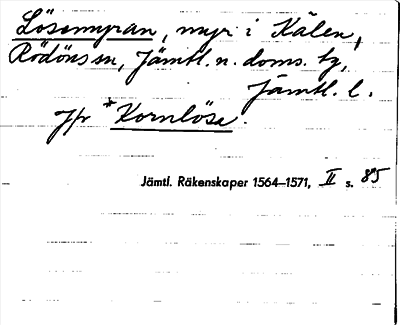 Lösemyran, myr i Kälen,
Rödöns sn, Jämtl. n. doms. tg,
Jämtl. l.
Jfr *Kornlöse.
Jämtl. Räkenskaper 1564–1571, II s. 85